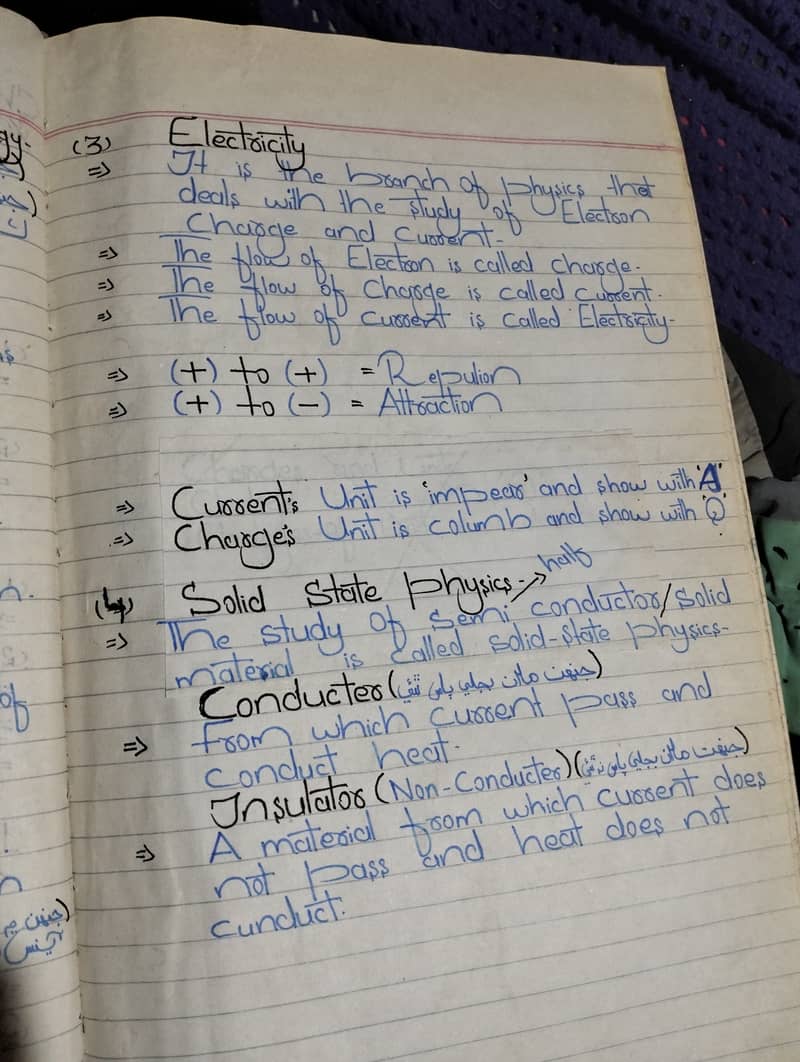 (3) Electricity
⇒ It is the branch of physics that
deals with the study of Electron
Charge and Current.
⇒ The flow of Electron is called charge.
⇒ The flow of Charge is called current.
⇒ The flow of current is called Electricity.
⇒ (+) to (+) = Repulion
⇒ (+) to (-) = Attraction
⇒ Current's Unit is 'impear' and show with 'A'
⇒ Charge's Unit is columb and show with 'Q'
(4) Solid State physics. → half
⇒ The study of semi conductor/solid
material is called solid-state physics-
Conducter
⇒ From which current pass and
conduct heat.
Insulator (Non-Conducter)
⇒ A material from which current does
not pass and heat does not
cunduct.